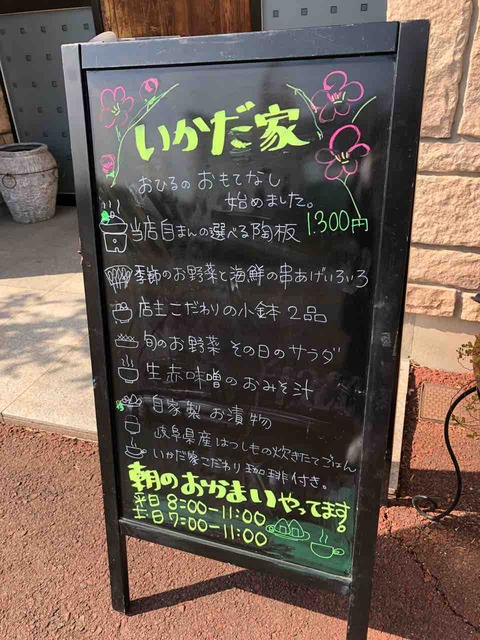 いかだ家
おひるのおもてなし
始めました。
1.300円
当店自まんの選べる陶板
季節のお野菜と海鮮の串あげいろいろ
店主こだわりの小鉢2品
旬のお野菜 その日のサラダ
生赤味噌のおみそ汁
自家製 お漬物
岐阜県産はつしもの炊きたてごはん
いかだ家こだわり珈琲付き。
朝のおかまいやってます。
平日 8:00-11:00
土日 7:00-11:00